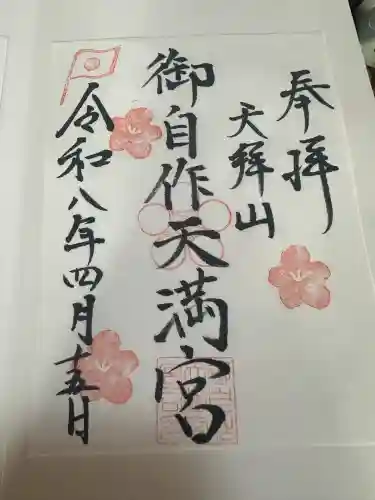 奉拝
天拝山
御自作天満宮
令和八年四月十五日